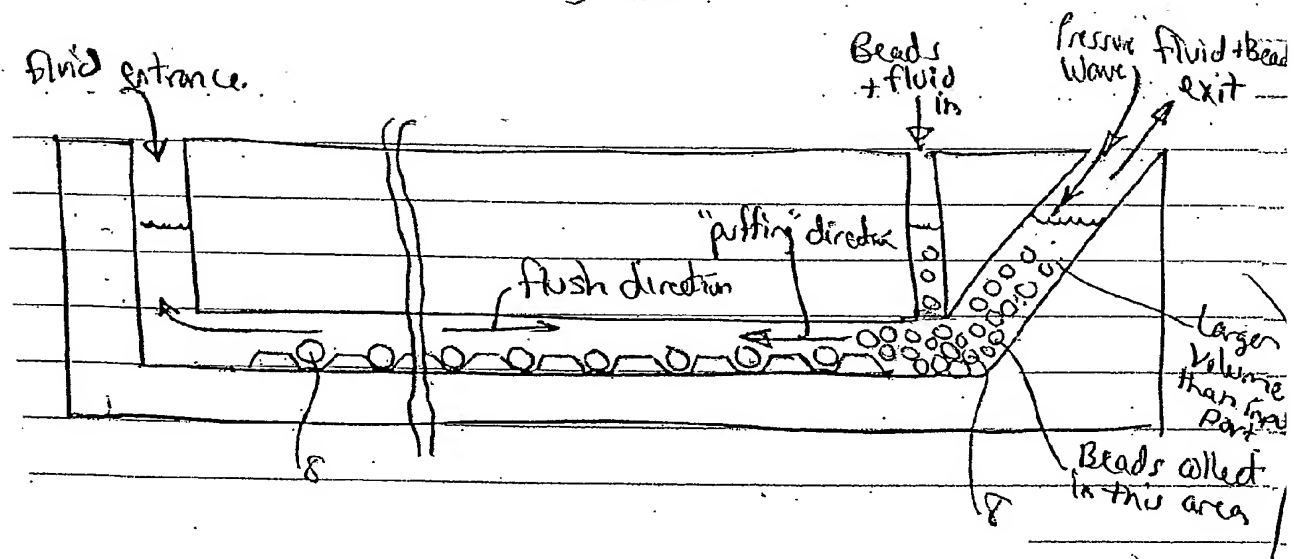 fluid entrance.
Beads
+ fluid
in
Pressure
Wave
fluid + Bead
exit
"puffing" direction
flush direction
Larger
Volume
than input
Port
Beads collect
in this area
8
8